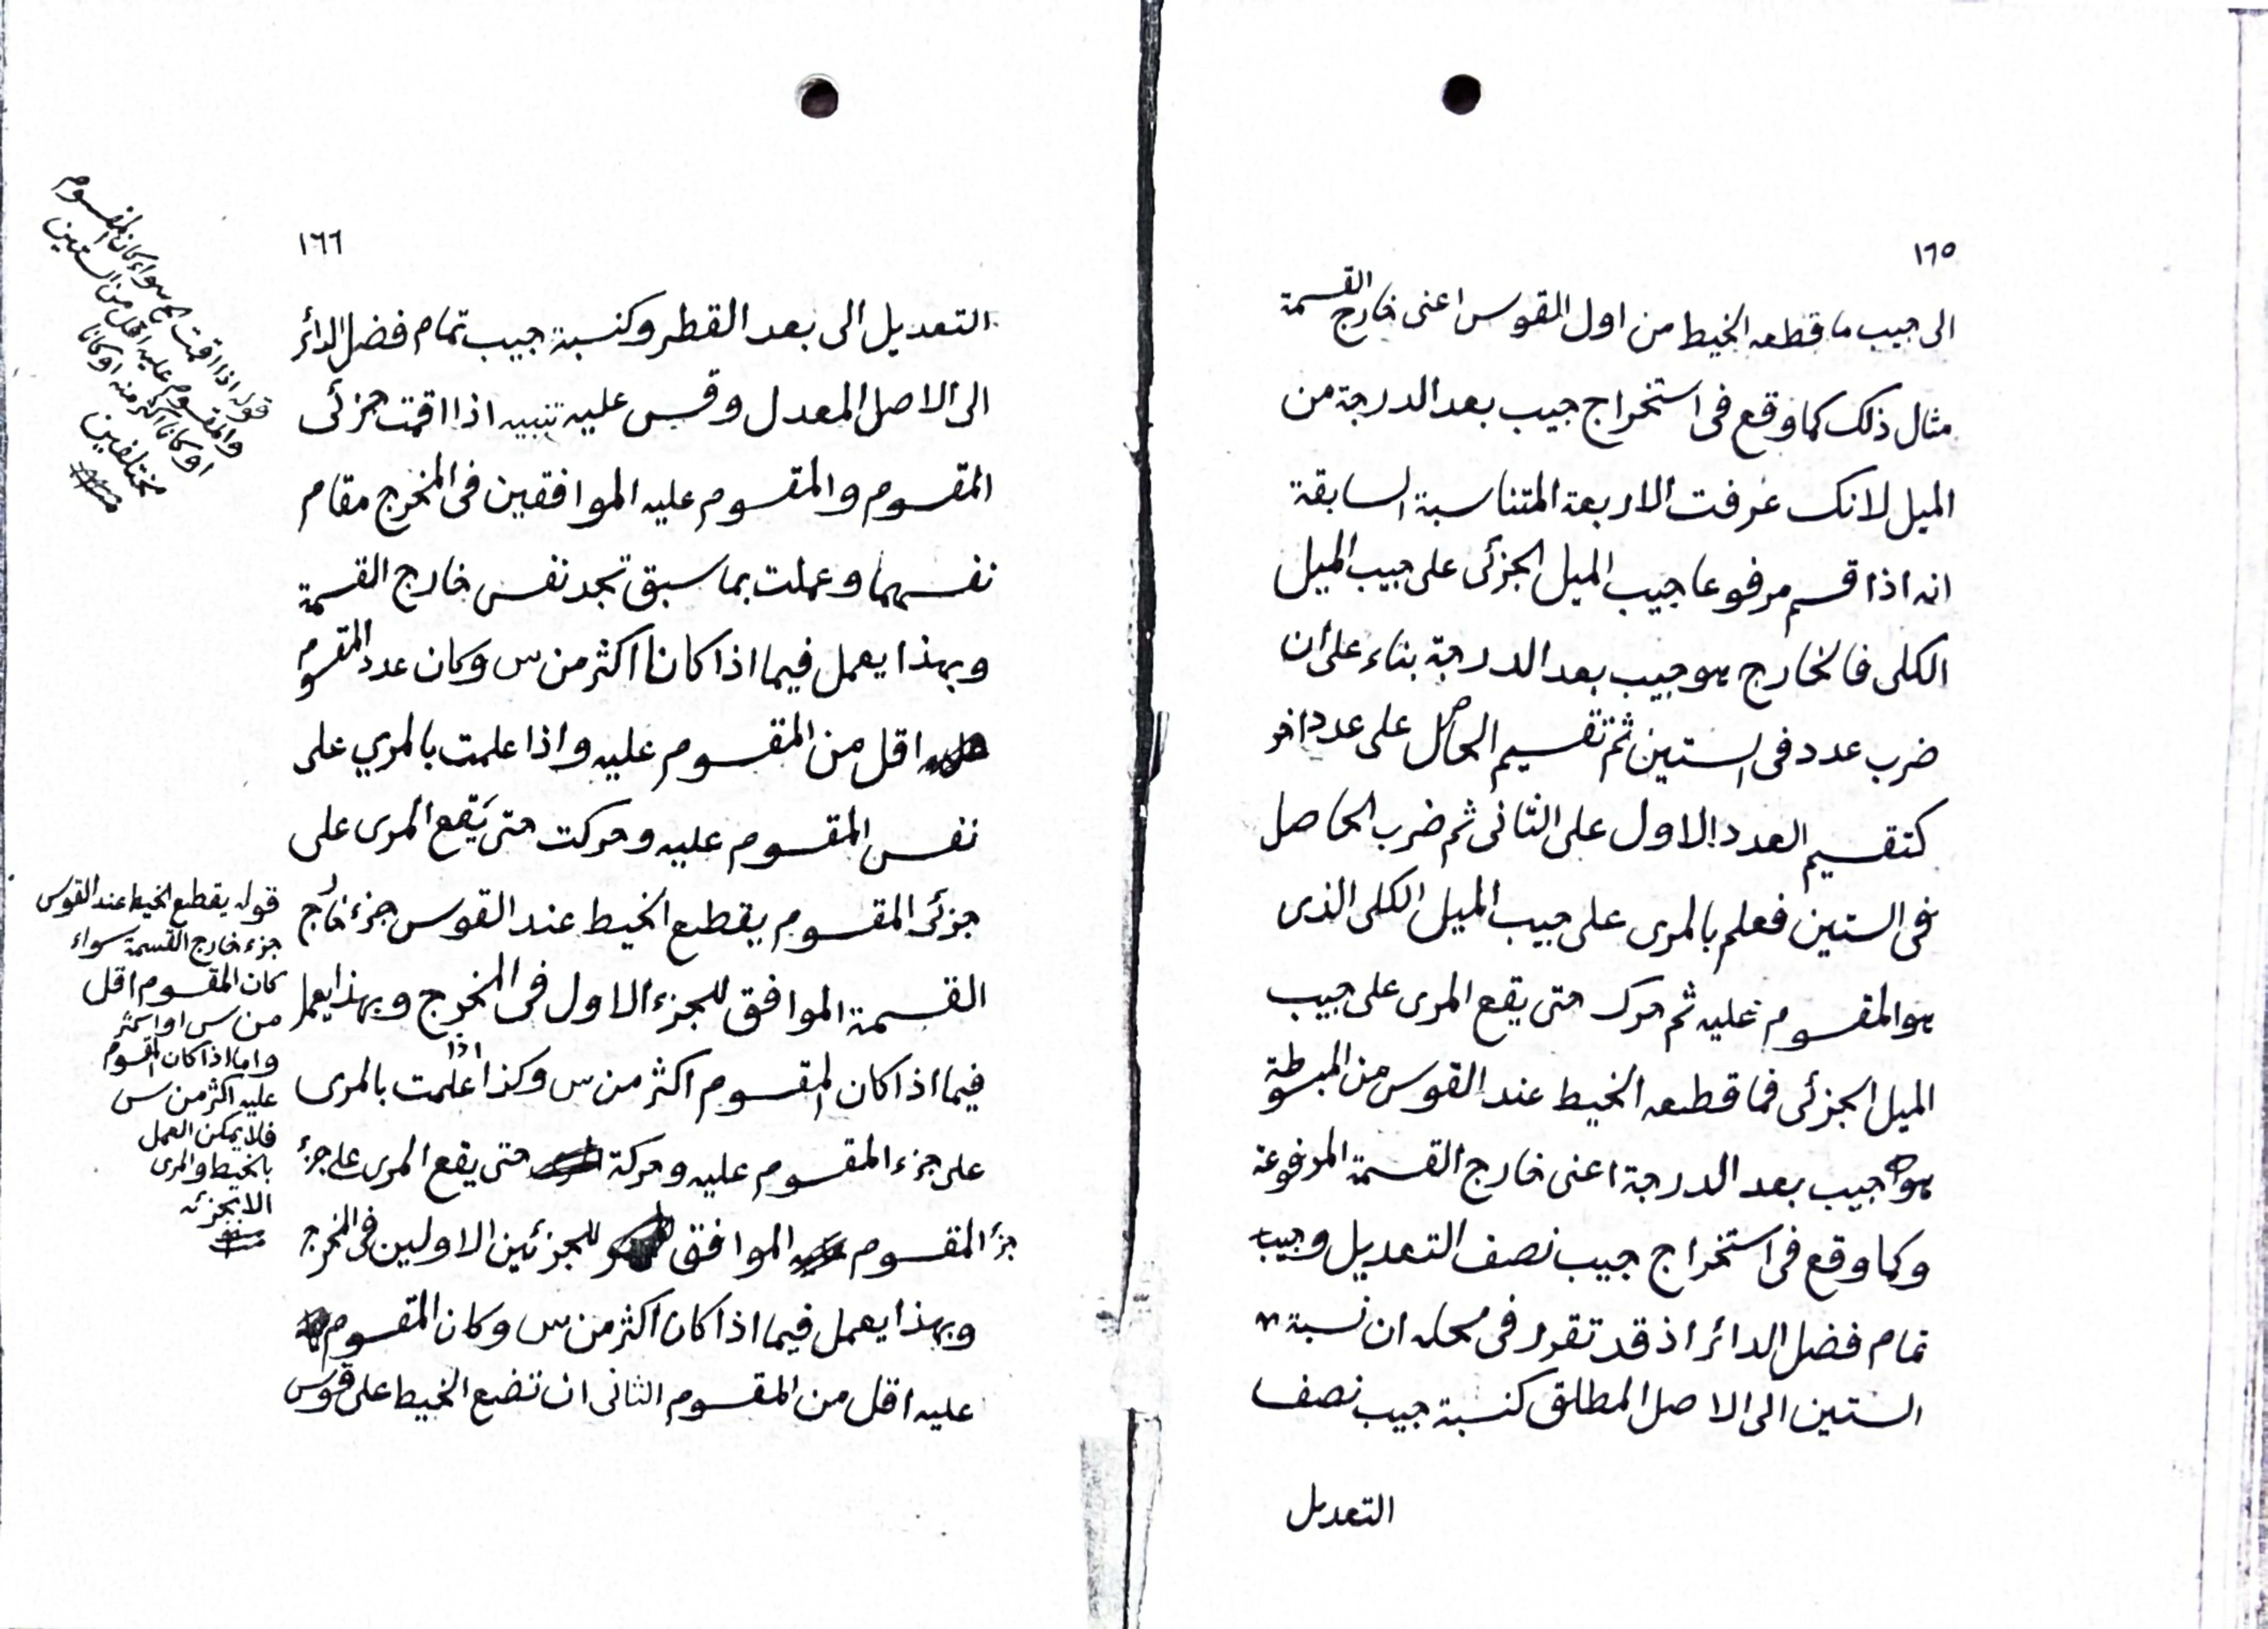 ١٦٥
الى جيب ما قطعه الخيط من اول القوس اعنى خارج القسمة
مثال ذلك كما وقع فى استخراج جيب بعد الدرجة من
الميل لانك عرفت الاربعة المتناسبة السابقة
انه اذا قسم مرفوعا جيب الميل الجزئى على جيب الميل
الكلى فالخارج هو جيب بعد الدرجة بناء على ان
ضرب عدد فى الستين ثم تقسيم الحاصل على عدد اخر
كتقسيم العدد الاول على الثانى ثم ضرب الحاصل
فى الستين فعلم بالمرى على جيب الميل الكلى الذى
هو المقسوم عليه ثم حرك حتى يقع المرى على جيب
الميل الجزئى فما قطعه الخيط عند القوس من المبسوطة
هو جيب بعد الدرجة اعنى خارج القسمة المرفوعة
وكما وقع فى استخراج جيب نصف التعديل وجيب
تمام فضل الدائر اذ قد تقرر فى محله ان نسبة
الستين الى الاصل المطلق كنسبة جيب نصف
التعديل
١٦٦
التعديل الى بعد القطر وكنسبة جيب تمام فضل الدائر
الى الاصل المعدل وقس عليه تنبيه اذا اقمت جزئى
المقسوم والمقسوم عليه الموافقين فى المخرج مقام
نفسهما وعملت بما سبق تجد نفس خارج القسمة
وبهذا يعمل فيما اذا كانا اكثر من س وكان عدد المقسوم
اقل من المقسوم عليه واذا علمت بالمري على
نفس المقسوم عليه وحركت حتى يقع المرى على
جزئى المقسوم يقطع الخيط عند القوس جزء خارج
القسمة الموافق للجزء الاول فى المخرج وبهذا يعمل
فيما اذا كان المقسوم اكثر من س وكذا اذا علمت بالمرى
على جزء المقسوم عليه وحركة حتى يقع المرى على جزئ
جزأ المقسوم الموافق للجزئين الاولين فى المخرج
وبهذا يعمل فيما اذا كان اكثر من س وكان المقسوم
عليه اقل من المقسوم الثانى ان تضع الخيط على قوس
قوله اذا اقمت الخ سواء كان المقسوم
والمقسوم عليه اقل من الستين
او كانا اكثر منه او كانا
مختلفين
منه
قوله يقطع الخيط عند القوس
جزء خارج القسمة سواء
كان المقسوم اقل
من س او اكثر
واما اذا كان المقسوم
عليه اكثر من س
فلا يمكن العمل
بالخيط والمرى
الا بجزئه
منه